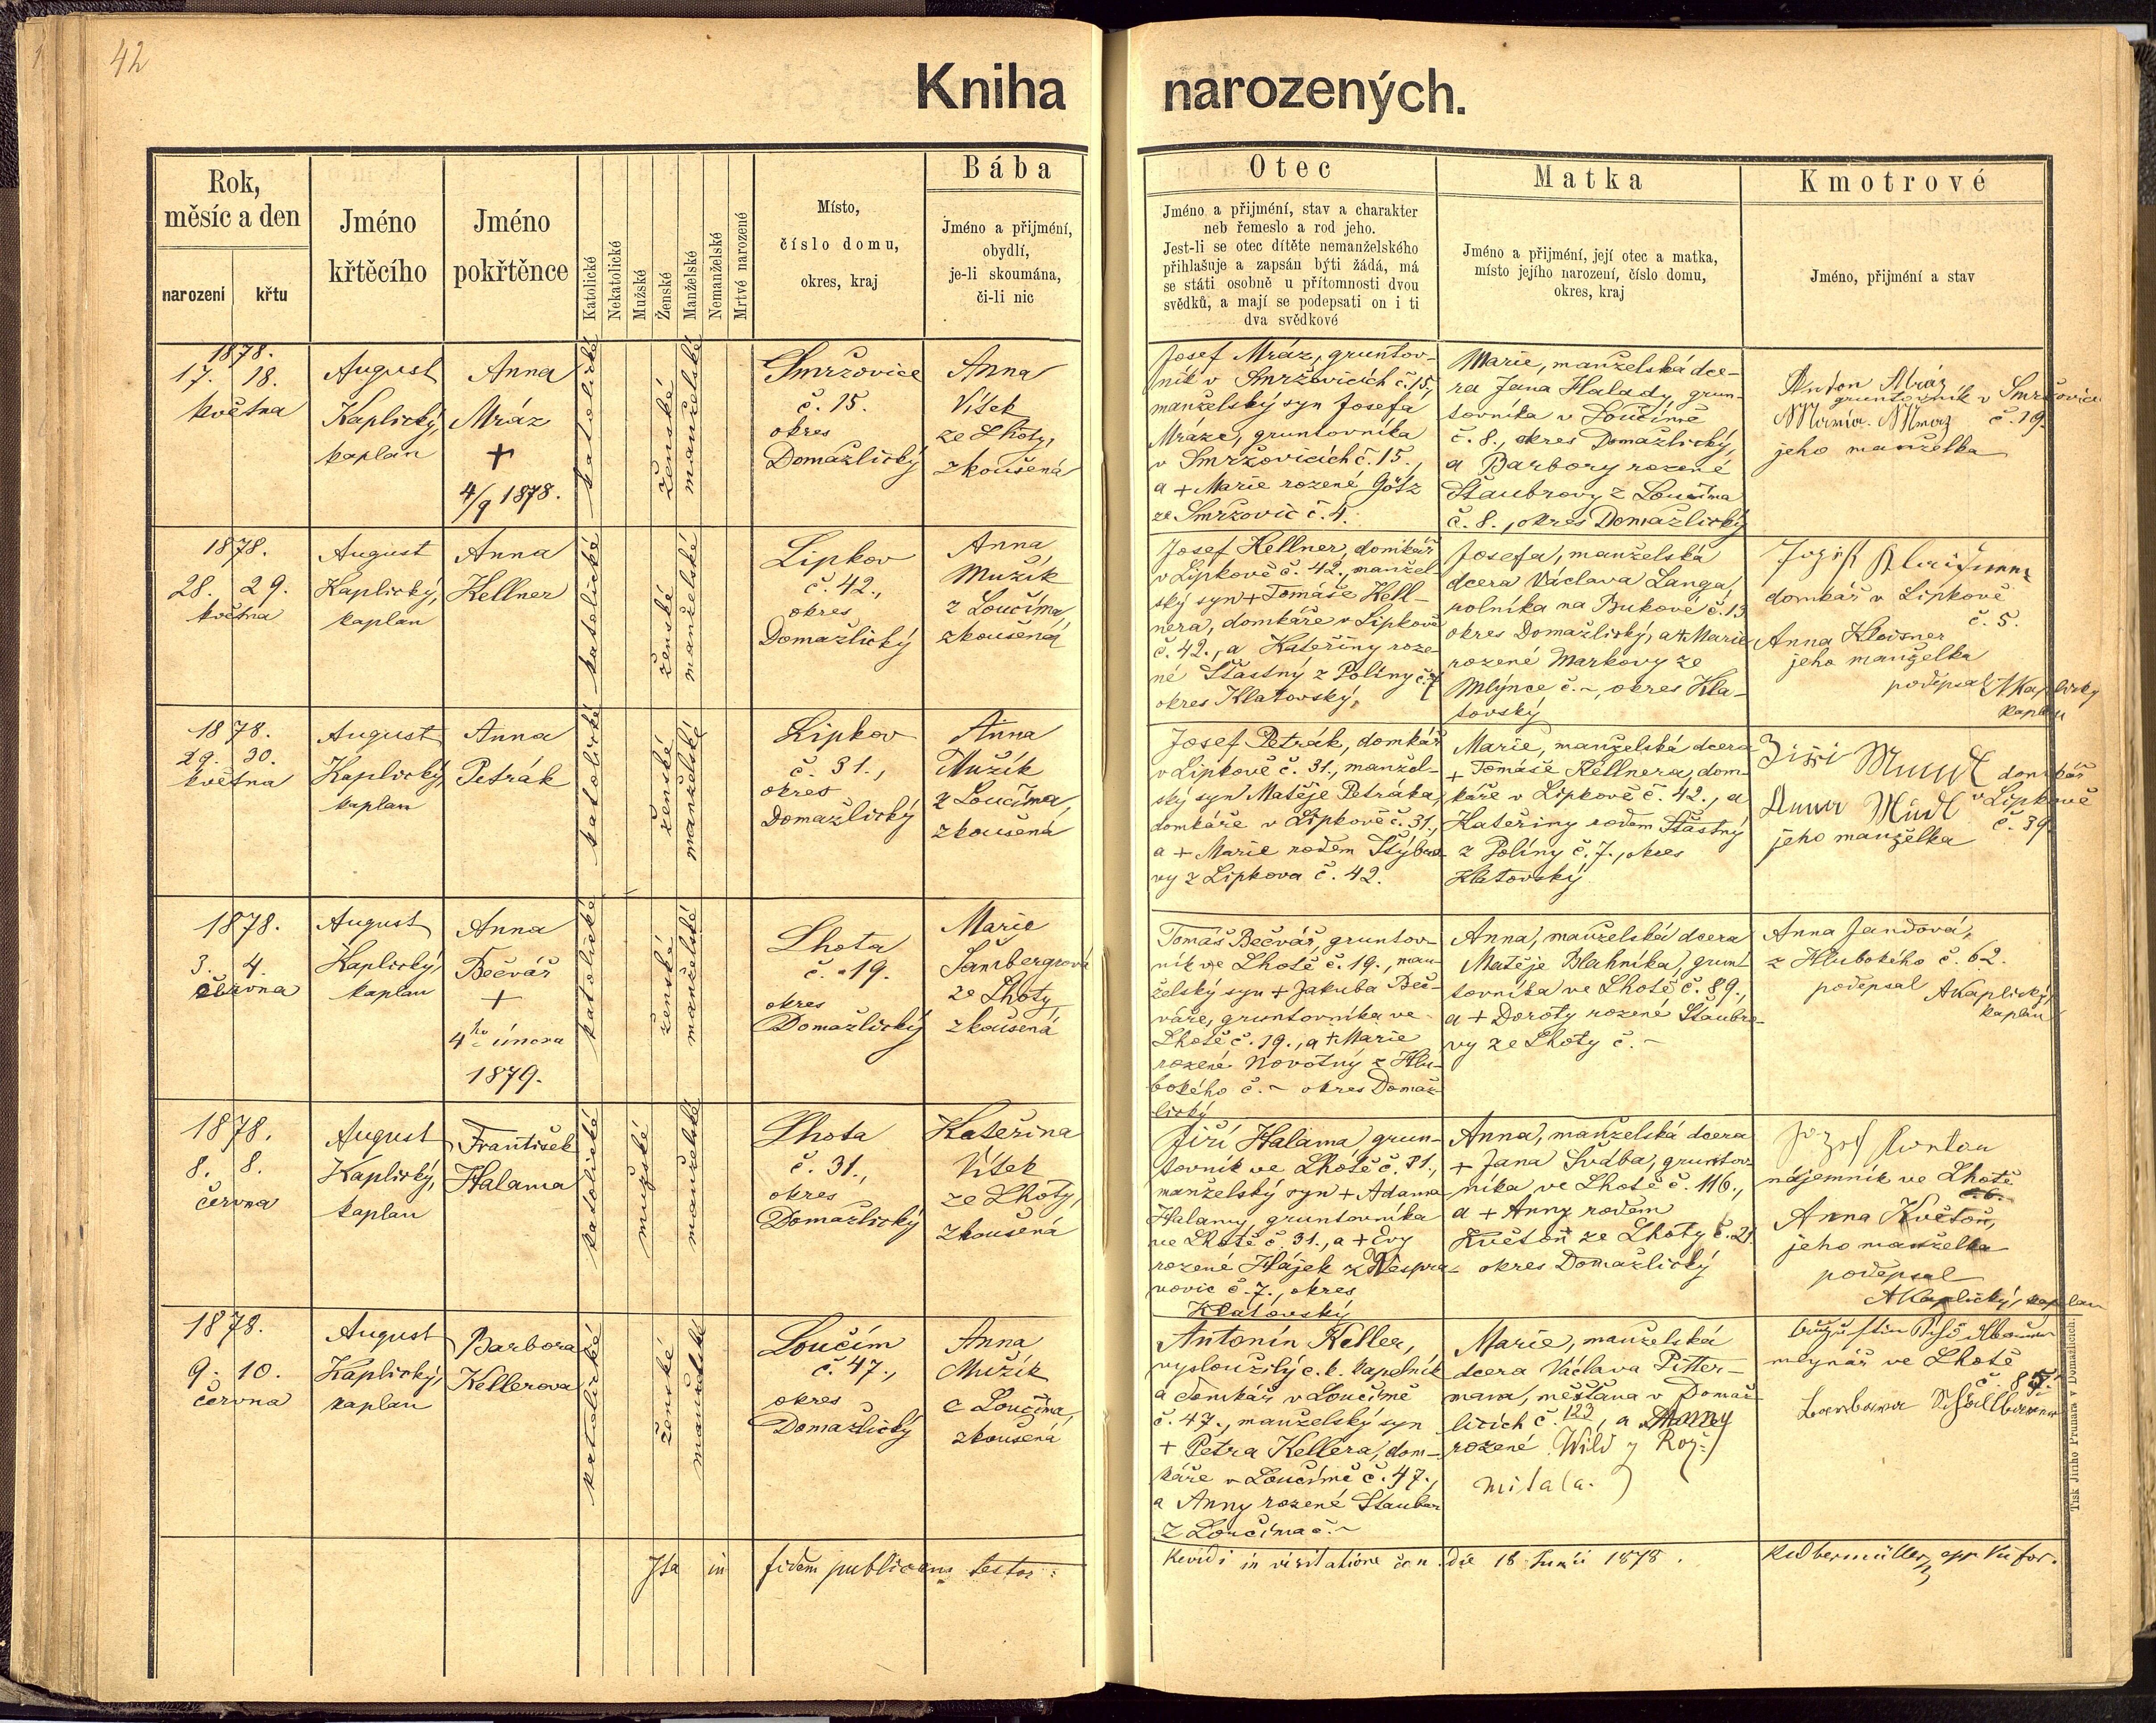 42
Kniha narozených.
Rok,
měsíc a den
narození
křtu
Jméno
křtěcího
Jméno
pokřtěnce
Katolické
Nekatolické
Mužské
Ženské
Manželské
Nemanželské
Mrtvě narozené
Místo,
číslo domu,
okres, kraj
Bába
Jméno a přijmění,
obydlí,
je-li skoumána,
či-li nic
Otec
Jméno a přijmění, stav a charakter
neb řemeslo a rod jeho.
Jest-li se otec dítěte nemanželského
přihlašuje a zapsán býti žádá, má
se státi osobně u přítomnosti dvou
svědků, a mají se podepsati on i ti
dva svědkové
Matka
Jméno a přijmění, její otec a matka,
místo jejího narození, číslo domu,
okres, kraj
Kmotrové
Jméno, přijmění a stav
1878.
17. 18.
května
August
Kaplický,
kaplan
Anna
Mráz
+
4/9 1878.
katolické
ženské
manželské
Smržovice
č. 15.
okres
Domažlický
Anna
Vítek
ze Lhoty,
zkoušená
Josef Mráz, gruntov-
ník v Smržovicích č. 15.,
manželský syn Josefa
Mráze, gruntovníka
v Smržovicích č. 15.,
a + Marie rozené Götz
ze Smržovic č. 4.
Marie, manželská dce-
ra Jana Halady, grun-
tovníka v Loučimě
č. 8., okres Domažlický,
a Barbory rozené
Štaubrovy z Loučima
č. 8., okres Domažlický
Anton Mráz
gruntovník v Smržovicích
č. 19.
jeho manželka
1878.
28. 29.
května
August
Kaplický,
kaplan
Anna
Kellner
katolické
ženské
manželské
Lipkov
č. 42.,
okres
Domažlický
Anna
Mužík
z Loučima,
zkoušená
Josef Kellner, domkář
v Lipkově č. 42., manžel-
ský syn + Tomáše Kell-
nera, domkáře v Lipkově
č. 42., a Kateřiny roze-
né Šťastný z Poliny č. 7
okres Klatovský,
Josefa, manželská
dcera Václava Langa,
rolníka na Bukově č. 13
okres Domažlický, a + Marie
rozené Markovy ze
Mlýnce č. ~, okres Kla-
tovský
domkář v Lipkově
č. 5.
Anna Kleisner
jeho manželka
podepsal A Kaplický
kaplan
1878.
29. 30.
května
August
Kaplický,
kaplan
Anna
Petrák
katolické
ženské
manželské
Lipkov
č. 31.,
okres
Domažlický
Anna
Mužík
z Loučima,
zkoušená
Josef Petrák, domkář
v Lipkově č. 31., manžel-
ský syn Matěje Petráka,
domkáře v Lipkově č. 31.,
a + Marie rodem
vy z Lipkova č. 42.
Marie, manželská dcera
+ Tomáše Kellnera, dom-
káře v Lipkově č. 42., a
Kateřiny rodem Šťastný
z Poliny č. 7., okres
Klatovský
domkář
v Lipkově
č. 39.
Anna
jeho manželka
1878.
3. 4.
června
August
Kaplický,
kaplan
Anna
Bečvář
+
4ho února
1879.
katolické
ženské
manželské
Lhota
č. 19.
okres
Domažlický
Marie
Šambergrová
ze Lhoty,
zkoušená
Tomáš Bečvář, gruntov-
ník ve Lhotě č. 19., man-
želský syn + Jakuba Beč-
váře, gruntovníka ve
Lhotě č. 19., a + Marie
rozené Novotný z Hlu-
bokého č. ~ okres Domaž-
lický
Anna, manželská dcera
Matěje Blahníka, grun-
tovníka ve Lhotě č. 89.,
a + Doroty rozené Štaubro-
vy ze Lhoty č. ~
Anna Jandová,
z Hlubokého č. 62.
podepsal A Kaplický,
kaplan
1878.
8. 8.
června
August
Kaplický,
kaplan
František
Halama
katolické
mužské
manželské
Lhota
č. 31.,
okres
Domažlický
Kateřina
Vítek
ze Lhoty,
zkoušená
Jiří Halama, grun-
tovník ve Lhotě č. 31.,
manželský syn + Adama
Halamy, gruntovníka
ve Lhotě č. 31., a + Evy
rozené Hájek z
č. 7., okres
Klatovský
Anna, manželská dcera
+ Jana Švába, gruntov-
níka ve Lhotě č. 116.,
a + Anny rodem
Květoň ze Lhoty č. 21.
okres Domažlický
nájemník ve Lhotě
Anna Květoň,
jeho manželka
podepsal
A Kaplický, kaplan
1878.
9. 10.
června
August
Kaplický,
kaplan
Barbora
Kellerova
katolické
ženské
manželské
Loučim
č. 47.,
okres
Domažlický
Anna
Mužík
z Loučima,
zkoušená
Antonín Keller,
vysloužilý c. k. kapelník
a domkář v Loučimě
č. 47., manželský syn
+ Petra Kellera, dom-
káře v Loučimě č. 47.,
a Anny rozené Štauber
z Loučima č. ~
Marie, manželská
dcera Václava Pitter-
mana, měšťana v Domaž-
licích č. 123, a Anny
rozené Wild z
mlynář ve Lhotě
č. 87.
Barbara
Ita in fidem publicam testor:
Revidi in visitatione can. die 18 Junii 1878.
Tisk Jiřího Prunara v Domažlicích.